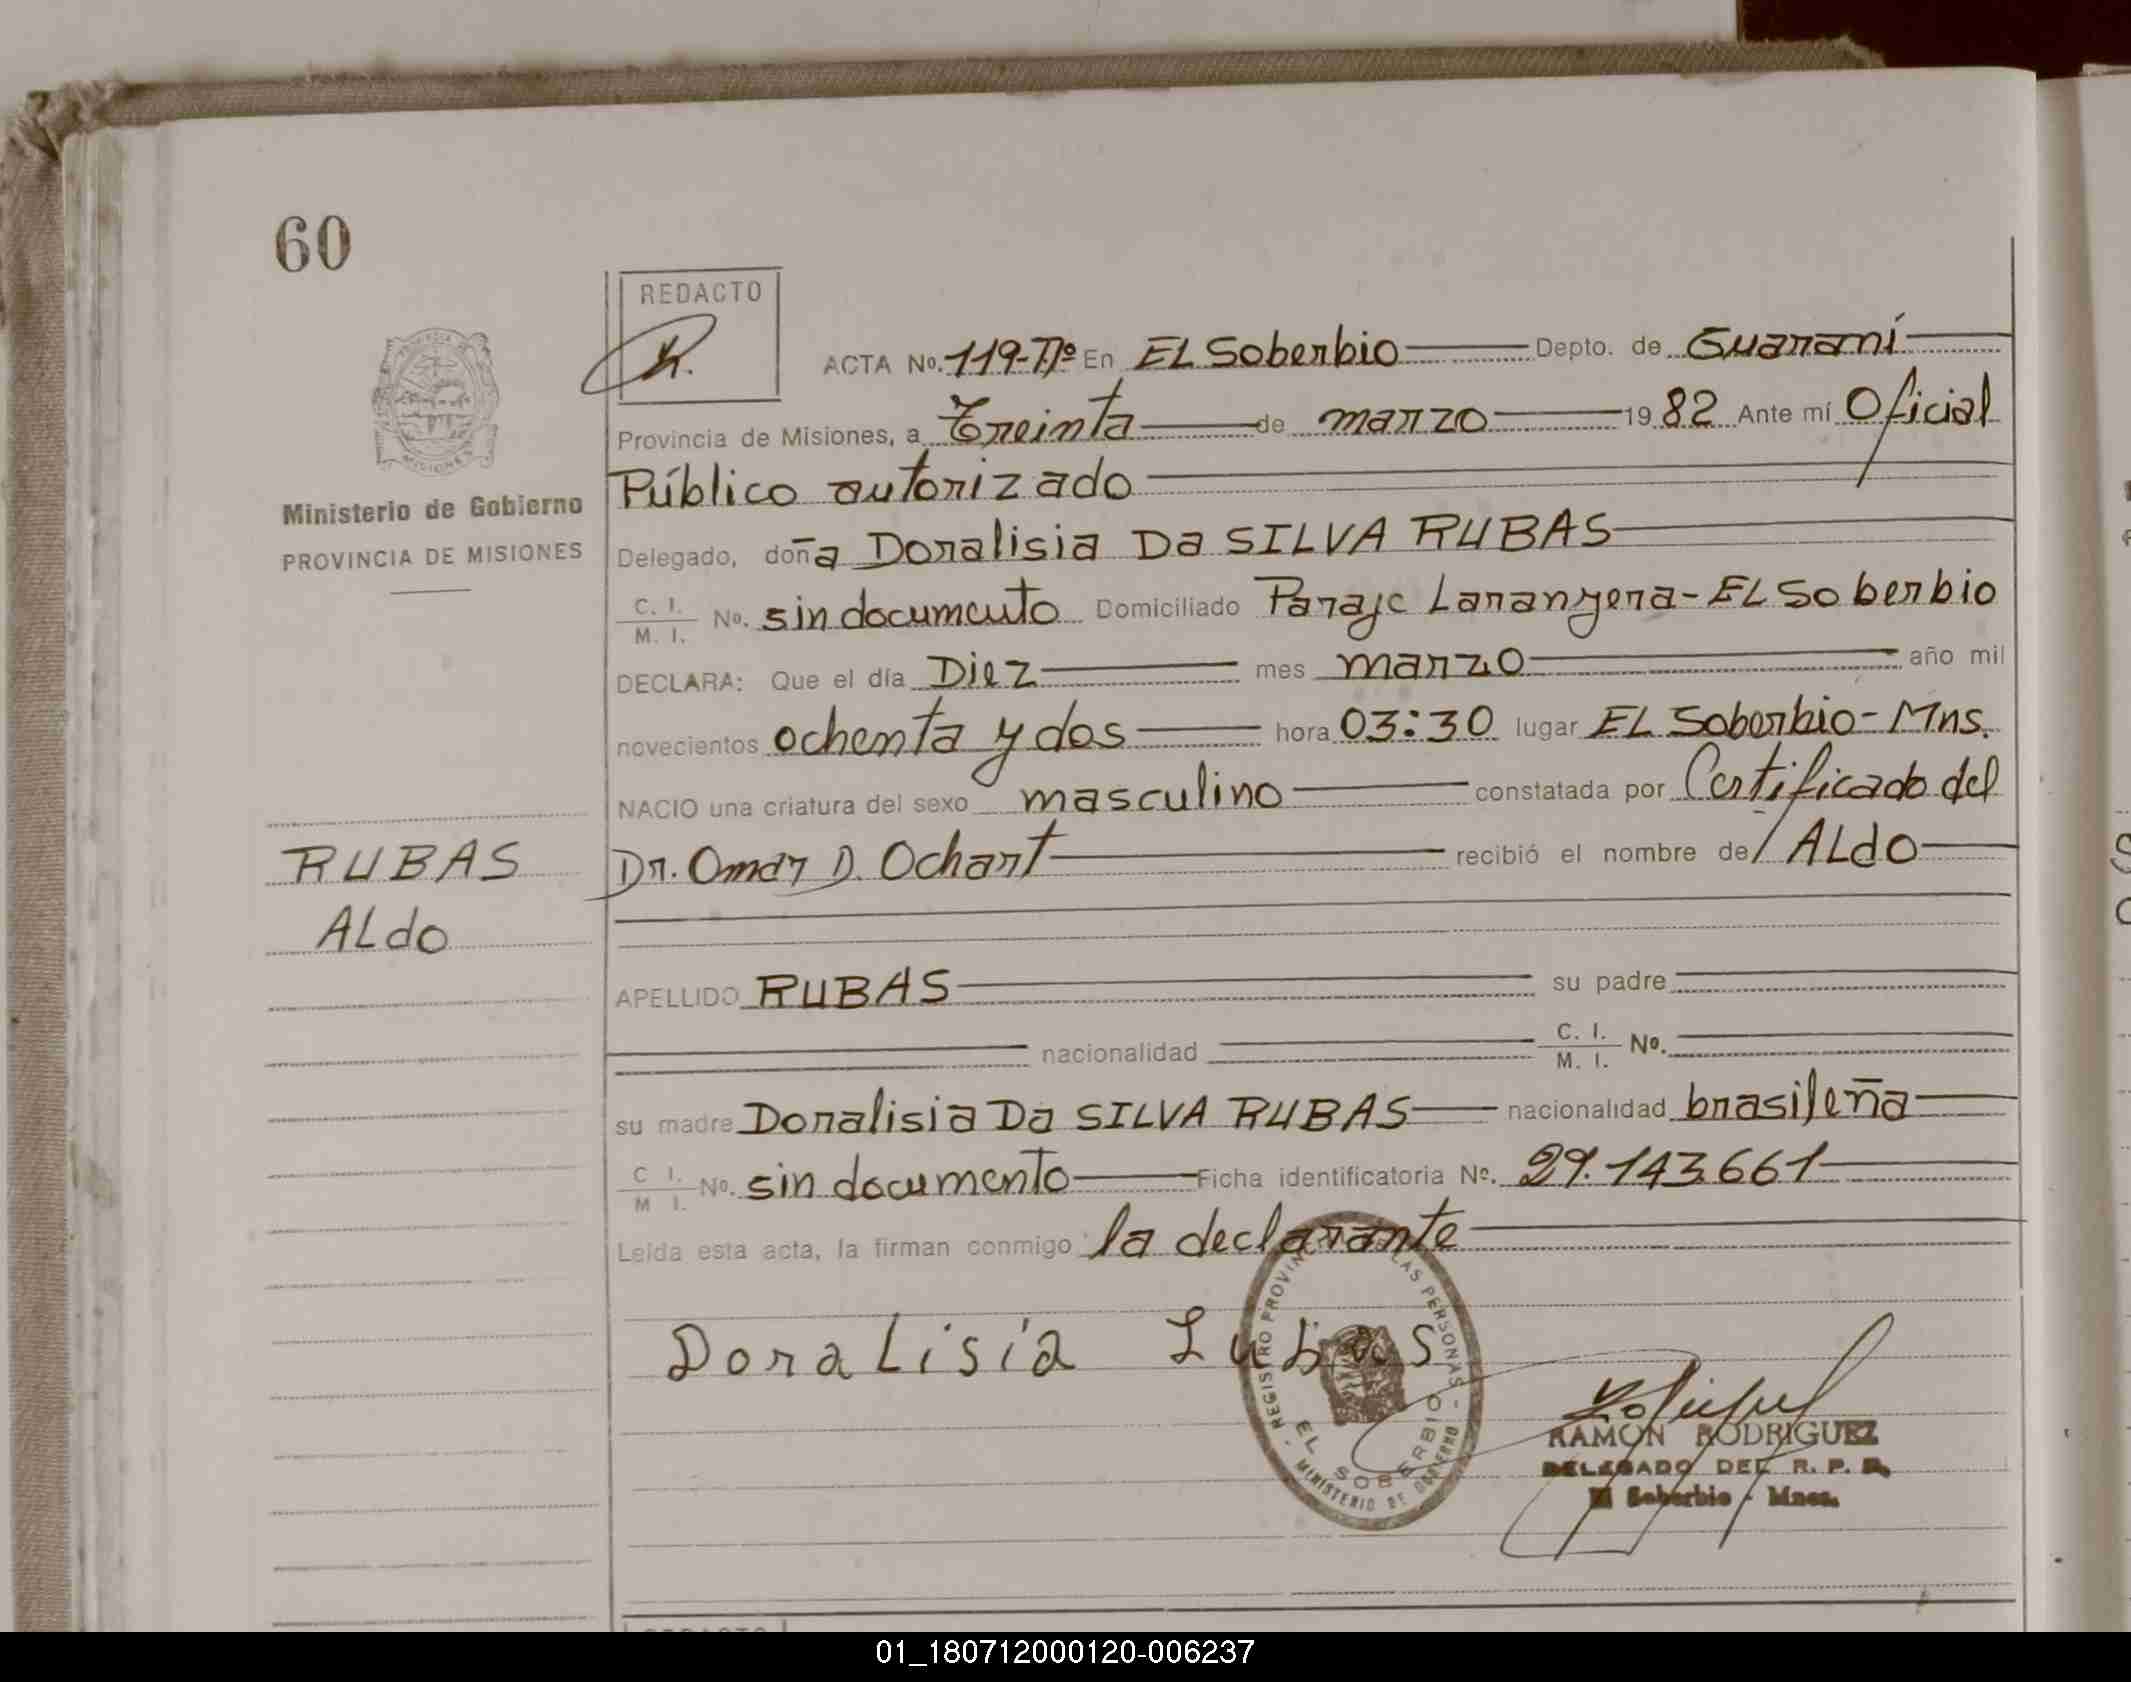 60
REDACTO
ACTA No. 119-Tº En EL Soberbio Depto. de Guaraní
Provincia de Misiones, a Treinta de marzo 1982 Ante mí Oficial
Público autorizado
Ministerio de Gobierno
PROVINCIA DE MISIONES
Delegado, doña Doralisia Da SILVA RUBAS
C. I.
M. I. No. sin documento Domiciliado Paraje Laranyera-EL Soberbio
DECLARA: Que el día Diez mes marzo año mil
novecientos ochenta y dos hora 03:30 lugar EL Soberbio-Mns.
NACIO una criatura del sexo masculino constatada por Certificado del
Dr. Omar D. Ochart recibió el nombre de ALdo
RUBAS
ALdo
APELLIDO RUBAS su padre
nacionalidad C. I.
M. I. Nº.
su madre Doralisia Da SILVA RUBAS nacionalidad brasileña
C I.
M I. No. sin documento Ficha identificatoria Nº. 29.143.661
Leída esta acta, la firman conmigo la declarante
DoraLisia Lubas
REGISTRO PROVIN LAS PERSONAS - MINISTERIO DE GOBIERNO -
EL SOBERBIO
RAMON RODRIGUEZ
DELEGADO DEL R. P. P.
El Soberbio - Mnes.
01_180712000120-006237